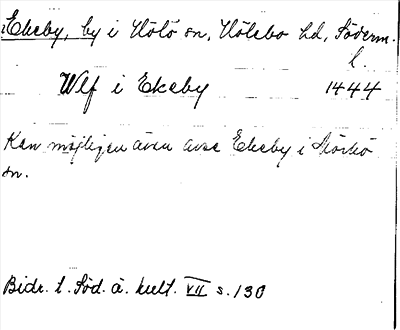 Ekeby, by i Hölö sn, Hölebo hd, Söderm.
l.
Wlf i Ekeby 1444
Kan möjligen även avse Ekeby i Mörkö
sn.
Bidr. t. Söd. ä. kult. VII s. 130